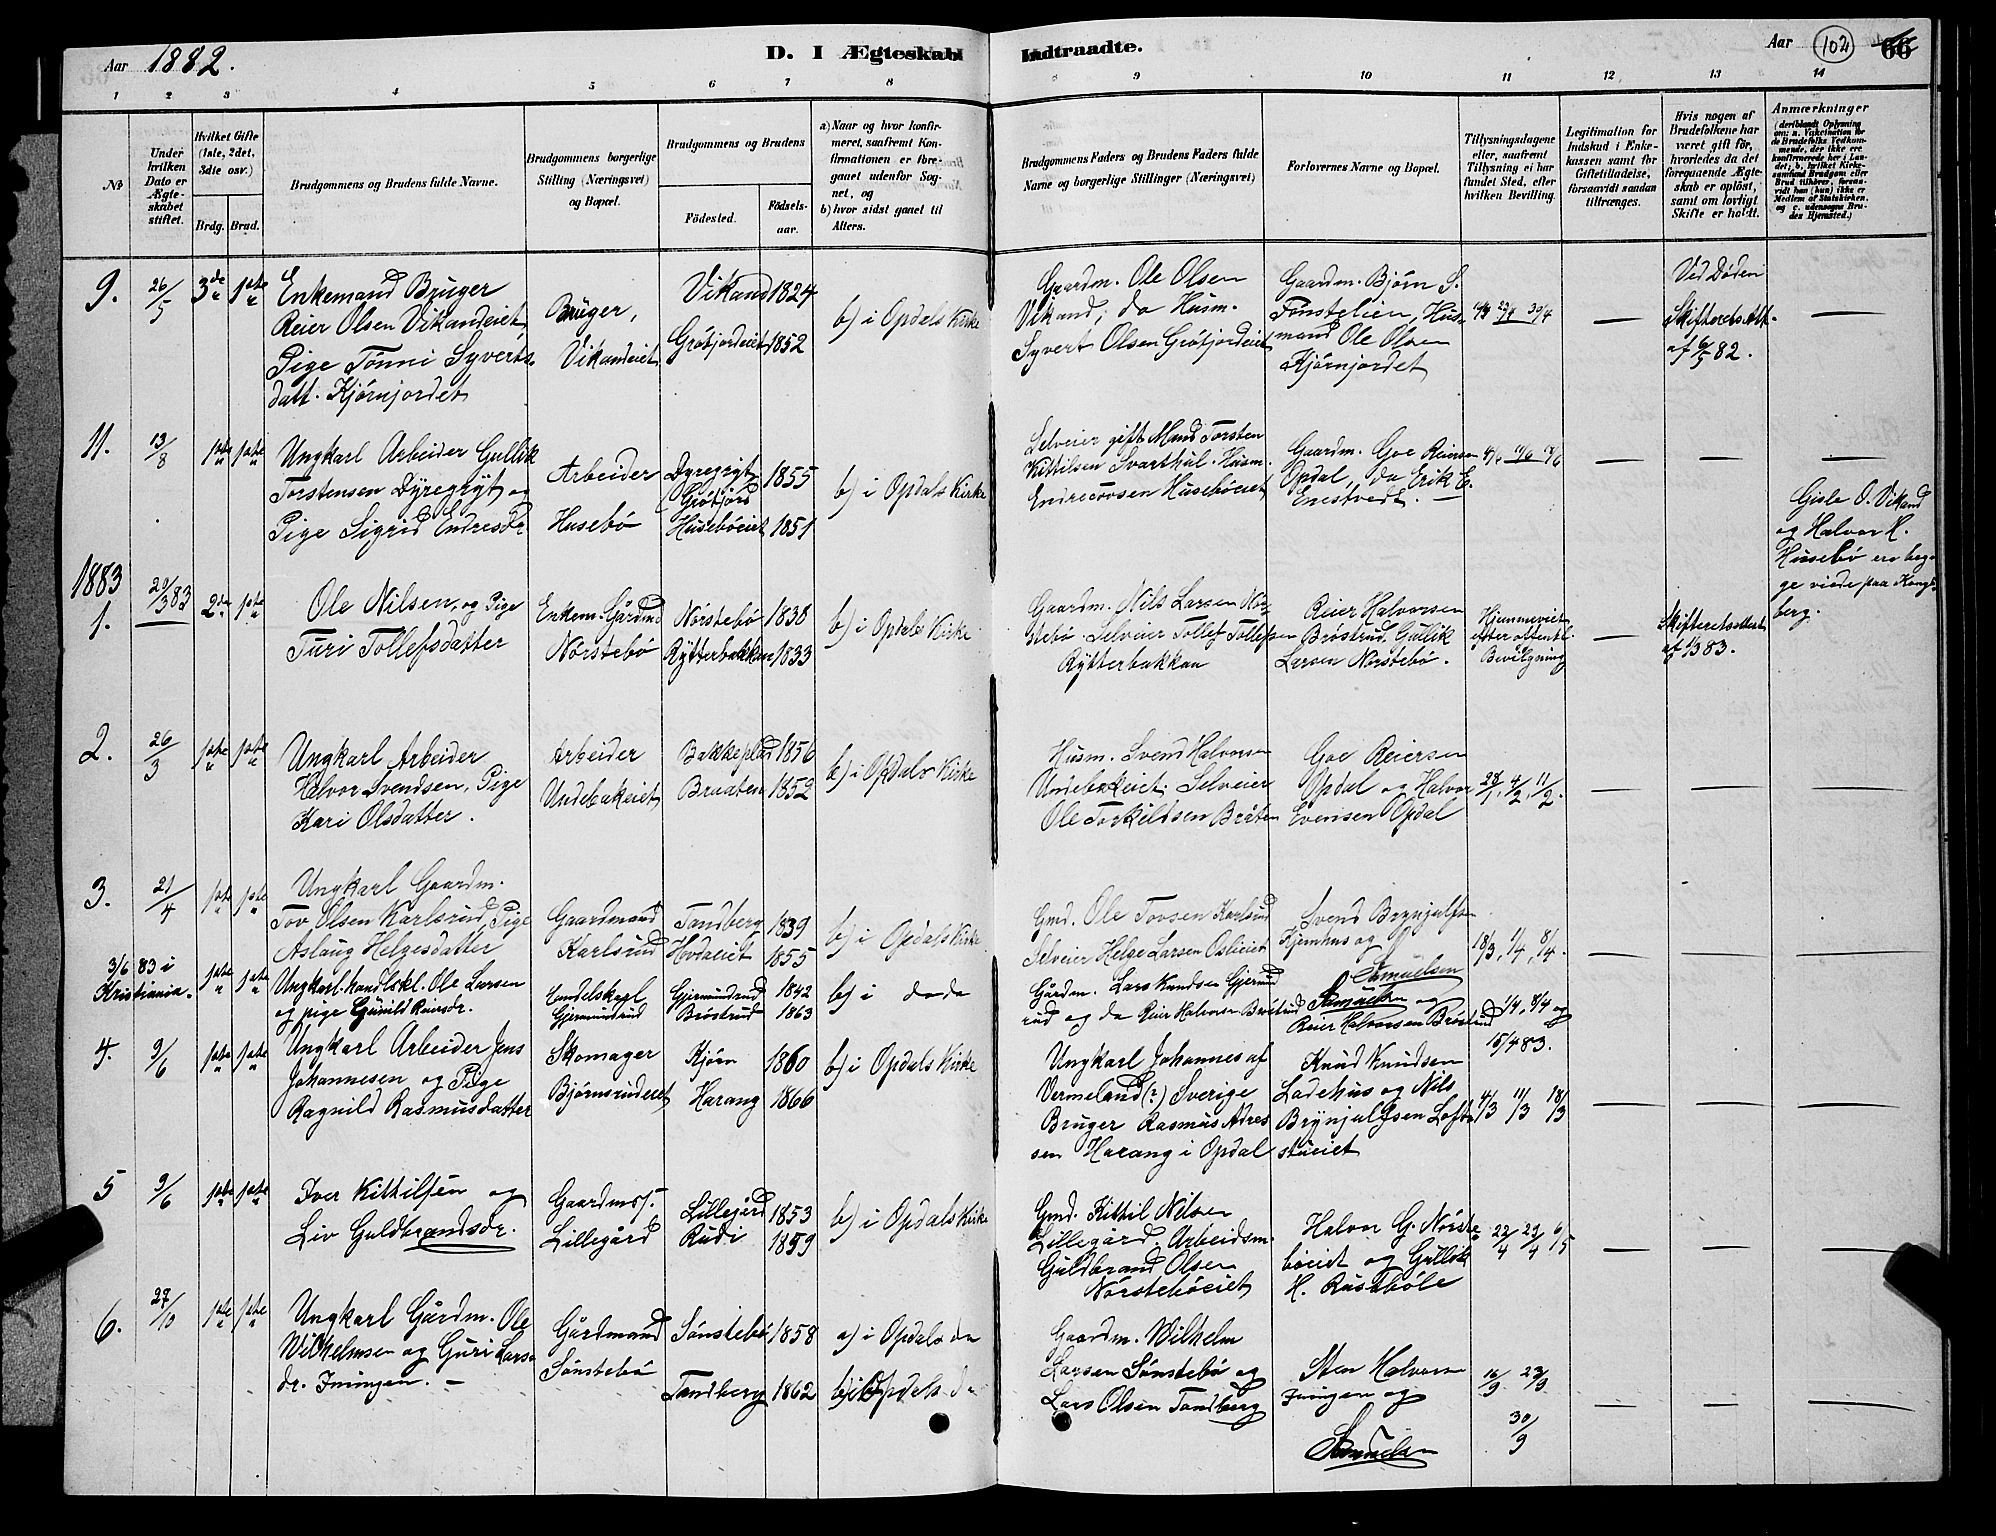 Aar 1882.
D. I Ægteskab Indtraadte.
Aar 102 66
1 2 3 4 5 6 7 8 9 10 11 12 13 14
No
Under hvilken Dato er Ægteskabet stiftet.
Hvilket Gifte (1ste, 2det, 3die osv.)
Brdg. Brud.
Brudgommens og Brudens fulde Navne.
Brudgommens borgerlige Stilling (Næringsvei) og Bopæl.
Brudgommens og Brudens
Födested.
Födselsaar.
a) Naar og hvor konfirmeret, saafremt Konfirmationen er foregaaet udenfor Sognet, og
b) hvor sidst gaaet til Alters.
Brudgommens Faders og Brudens Faders fulde Navne og borgerlige Stillinger (Næringsvei)
Forlovernes Navne og Bopæl.
Tillysningsdagene eller, saafremt Tillysning ei har fundet Sted, efter hvilken Bevilling.
Legitimation for Indskud i Enkekassen samt for Giftetilladelse, forsaavidt saadan tiltrænges.
Hvis nogen af Brudefolkene har været gift för, hvorledes da det foregaaende Ægteskab er oplöst, samt om lovligt Skifte er holdt.
Anmærkninger
(deriblandt Oplysning om: a. Vakcination for de Brudefolks Vedkommende, der ikke ere konfirmerede her i Landet; b. hvilket Kirkesamfund Brudgom eller Brud tilhörer, forsaavidt han (hun) ikke er Medlem af Statskirken, og c. udensogns Brudes Hjemsted.)
9. 26/5 3de 1ste
Enkemand Bruger
Reier Olsen Vikandeiet
Pige Tönni Syverts-
datt. Kjörnjordet
Bruger,
Vikandeiet
Vikand 1824
Gröfjordeiet 1852
b) i Opdals Kirke
Gaardm. Ole Olsen
Vikand; do Husm.
Syvert Olsen Gröfjordeiet
Gaardm. Björn S.
Fönstelien, Hus-
mand Ole Olsen
Kjörnjordet
23/4 30/4
—
Ved Döden
Skifterets Att.
af 6/5 82.
—
11. 13/8 1ste 1ste
Ungkarl Arbeider Gullik
Torstensen Dyregryt og
Pige Sigrid Endresdr
Arbeider
Husebö
Dyregryt 1855
(Gröfjord
Huseböeiet 1851
b) i Opdals Kirke
Selveier gift Mand Torsten
Kittilsen Svarthul. Husm.
Endre Tovsen Huseböeiet
Gaardm. Goe Reiersen
Opdal, do Erik E.
Enestvedt. —
4/6 11/6 18/6
— — —
Gisle O. Vikand
og Halvor H.
Husebö ere beg-
ge viede paa Kongs-
berg.
1883
1. 20/3 83 2de 1ste
Ole Nilsen, og Pige
Turi Tollefsdatter
Enkem. Gårdmd
Nörstebö
Nörstebö 1838
Rytterbakken 1833
b) i Opdals Kirke
Gaardm. Nils Larsen Nör-
stebö. Selveier Tollef Tollefsen
Rytterbakkan
Reier Halvorsen
Bröstrud. Gullik
Larsen Nörstebö.
Hjemmeviet
efter offentl.
Bevilgning
—
Skifteretsattest
af 1/3 83.
2. 26/3 1ste 1ste
Ungkarl Arbeider
Halvor Svendsen, Pige
Kari Olsdatter.
Arbeider
Undebakeiet
Bakkeplad 1856
Braaten 1852
b) i Opdals Kirke
Husm. Svend Halvorsen
Undebakeiet. Selveier
Ole Torkildsen Bråten
Goe Reiersen
Opdal og Halvor
Evensen Opdal
28/1, 4/2, 11/2.
— — —
3. 21/4 1ste 1ste
Ungkarl Gaardm.
Tov Olsen Karlsrud, Pige
Aslaug Helgesdatter
Gaardmand
Karlsrud
Tandberg 1839
Hovdaeiet 1855
b) i Opdals Kirke
Gmd. Ole Tovsen Karlsrud
Selveier Helge Larsen Oslieiet
Svend Brynjulfsen
Kjemhus og
Samuelsen
18/3, 1/4, 8/4.
— — —
3/6 83 i
Kristiania. 1ste 1ste
Ungkarl. handlskl. Ole Larsen
og pige Gunild Reiersdr.
Handelskarl
Gjermundrud
Gjermundrud 1842
Bröstrud 1863
b) i do do
Gårdm. Lars Knudsen Gjermund
rud og do Reier Halvorsen Bröstrud
Samuelsen og
Reier Halvorsen Bröstrud
1/4, 8/4 og
15/4 83.
4. 9/6 1ste 1ste
Ungkarl Arbeider Jens
Johannesen og Pige
Ragnild Rasmusdatter
Skomager
Björnsrudeiet
Kjörn 1860
Harang 1866
b) i Opdals Kirke
Ungkarl Johannes af
Vermeland (?) Sverige
Bruger Rasmus Andres
sen Harang i Opdal
Knud Knudsen
Ladehus og Nils
Brynjulfsen Loft-
stueiet
4/3 11/3 18/3
— — —
5 9/6 1ste 1ste
Iver Kittilsen og
Liv Guldbrandsdr.
Gaardms.
Lillegård
Lillegård 1853
Rudi 1859
b) i Opdals Kirke
Gmd. Kittil Nilsen
Lillegård. Arbeidsm.
Guldbrand Olsen
Nörsteböeiet
Halvor G. Nörste-
böeiet og Gullik
H. Rustaböle
22/4 29/4 6/5
— — —
6. 27/10 1ste 1ste
Ungkarl Gårdm. Ole
Wilhelmsen og Guri Lars-
dr. Juvingen. —
Gårdmand
Sönstebö
Sönstebö 1858
Tandberg 1862
a) i Opdals do
b) i Opdals do
Gaardm. Wilhelm
Larsen Sönstebö og
Lars Olsen Tandberg
Sten Halvorsen
Juvingen og
Samuelsen
16/9 23/9
30/9
— — —